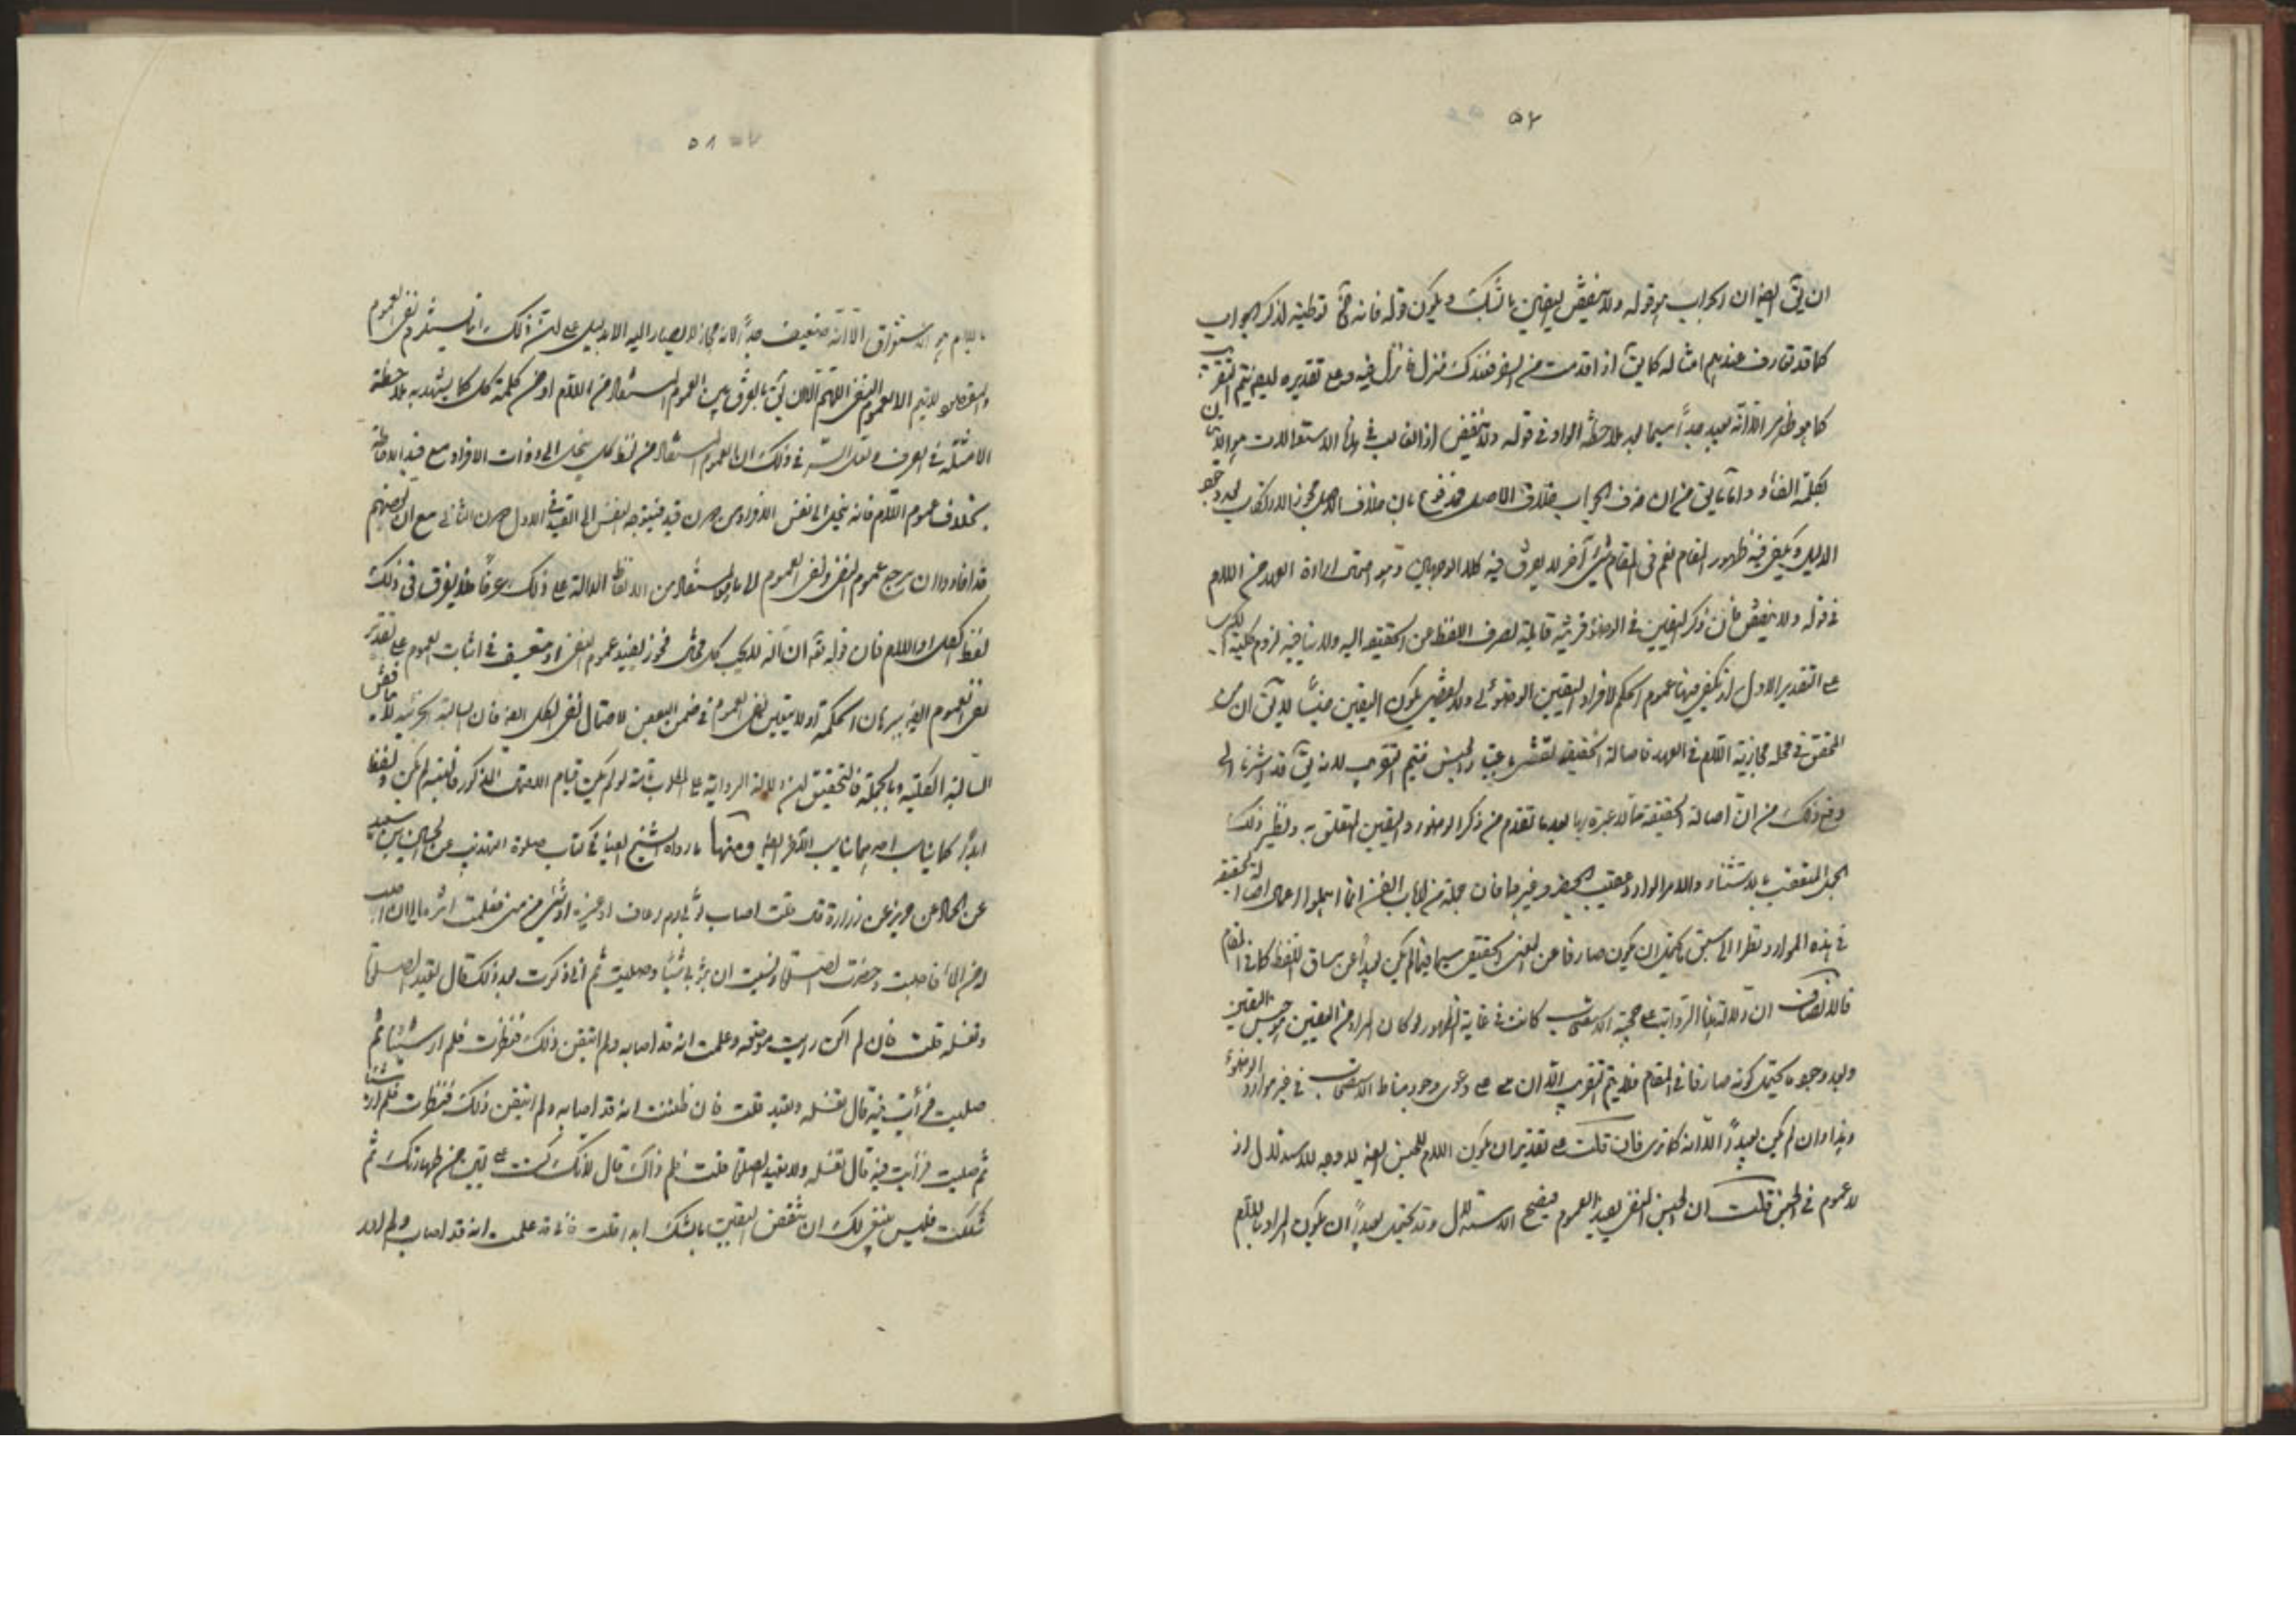 ٥٧
ان يق ايضا ان الجواب هو قوله ولا ينقض اليقين بالشك ويكون قوله فانه توطئة لذكر الجواب
كما قد تعارف عندهم امثاله كما يق اذا قدمت من السفر فعندك منزل فانزل فيه وعلى تقديره ايضا يتم التقريب
كما هو ظاهر الا انه بعيد جدا سيما بعد ملاحظة الواو في قوله ولا ينقض اذ الغالب في هذه الاستعمالات هو الاتيان
بكلمة الفاء واما ما يق من ان حذف الجواب خلاف الاصل فمدفوع بان خلاف الاصل يجوز الارتكاب بعد وجود
الدليل ويكفي فيه ظهور المقام نعم في المقام شيء آخر لا يفرق فيه كلا الوجهين وهو احتمال ارادة العهد من اللام
في قوله ولا ينقض فان ذكر اليقين في الوضوء قرينة قابلة لصرف اللفظ من الحقيقة اليه ولا ينافيه لزوم كلية الكبرى
على التقدير الاول اذ يكفي فيها عموم الحكم لافراد اليقين بالوضوء ولا يقتضي كون اليقين جنسا لا يق ان
المحقق في محله مجازية اللام في العهد فاصالة الحقيقة تقتضي اعتبار الجنس فيتم التقريب لانه يق قد اشرنا الى
دفع ذلك من ان اصالة الحقيقة مما لا عبرة بها بعد ما تقدم من ذكر الوضوء واليقين المتعلق به ونظير ذلك
الجمل المتعقب بالاستثناء والامر الوارد عقيب الحظر وغيرها فان جملة من ارباب الفن انما اهملوا اعمال اصالة الحقيقة
في هذه الموارد نظرا الى سبق ما يحتمل ان يكون صارفا عن المعنى الحقيقي سيما فيما لم يكن بعيدا عن مساق اللفظ كما في المقام
فالانصاف ان دلالة هذه الرواية على حجية الاستصحاب كانت في غاية الظهور لو كان المراد من اليقين هو جنس اليقين
وبعد وجود ما يحتمل كونه صارفا في المقام فلا يتم التقريب الا ان على دعوى وجود مناط الاستصحاب في غير موارد الوضوء
وهذا وان لم يكن بعيدا الا انه كما ترى فان قلت على تقدير ان يكون اللام للجنس ايضا لا وجه للاستدلال اذ
لا عموم في الجنس قلت ان الجنس المنفي يفيد العموم فيصح الاستدلال وقد يحتمل بعيدا ان يكون المراد باللام
٥٨
باللام هو الاستغراق الا انه ضعيف جدا لانه مجاز لا يصار اليه الا بدليل على ان ذلك انما يستلزم نفي العموم
والمقصود لا يتم الا بعموم النفي اللهم الا ان يق بالفرق بين العموم المستفاد من اللام او من كلمة كل كما يشهد به ملاحظة
الامثلة في العرف ولعل السر في ذلك ان العموم المستفاد من لفظ كل ينحل الى ذوات الافراد مع قيد الاحاطة
بخلاف عموم اللام فانه ينحل الى نفس الافراد من دون قيد فيتوجه النفي الى القيد في الاول دون الثاني مع ان بعضهم
قد افادوا ان مرجع عموم النفي ونفي العموم الى ما هو المستفاد من الالفاظ الدالة على ذلك عرفا فلا يفرق في ذلك
لفظ الكل او اللام فان قوله تعالى ان الله لا يحب كل مختال فخور يفيد عموم النفي او متعسف في اثبات العموم على تقدير
نفي العموم ايضا بجريان الحكمة اذ لا يتعين نفي العموم في ضمن البعض لاحتمال نفي الكل ايضا فان السالبة الجزئية لا يناقض
السالبة الكلية وبالجملة فالتحقيق ان دلالة الرواية على المطلوب ثابتة لو لم يكن قيام الاحتمال المذكور فليتدبر لم يكن ولفظ
ابدا كما يناسب يناسب ايضا ومنها ما رواه الشيخ ايضا في كتاب صلوة التهذيب عن الحسين بن سعيد
عن حماد عن حريز عن زرارة قال قلت اصاب ثوبي دم رعاف او غيره او شيء من مني فعلمت اثره الى ان اصيب
له من الماء فاصبت وحضرت الصلوة ونسيت ان بثوبي شيئا وصليت ثم اني ذكرت بعد ذلك قال تعيد الصلوة
وتغسله قلت فان لم اكن رايت موضعه وعلمت انه قد اصابه ولم اتيقن ذلك فنظرت فلم ار شيئا ثم
صليت فرأيت فيه قال تغسله وتعيد قلت فان ظننت انه قد اصابه ولم اتيقن ذلك فنظرت فلم ار شيئا
ثم صليت فرأيت فيه قال تغسله ولا تعيد الصلوة قلت لم ذاك قال لانك كنت على يقين من طهارتك ثم
شككت فليس ينبغي لك ان تنقض اليقين بالشك ابدا قلت فاني قد علمت انه قد اصابه ولم ادر